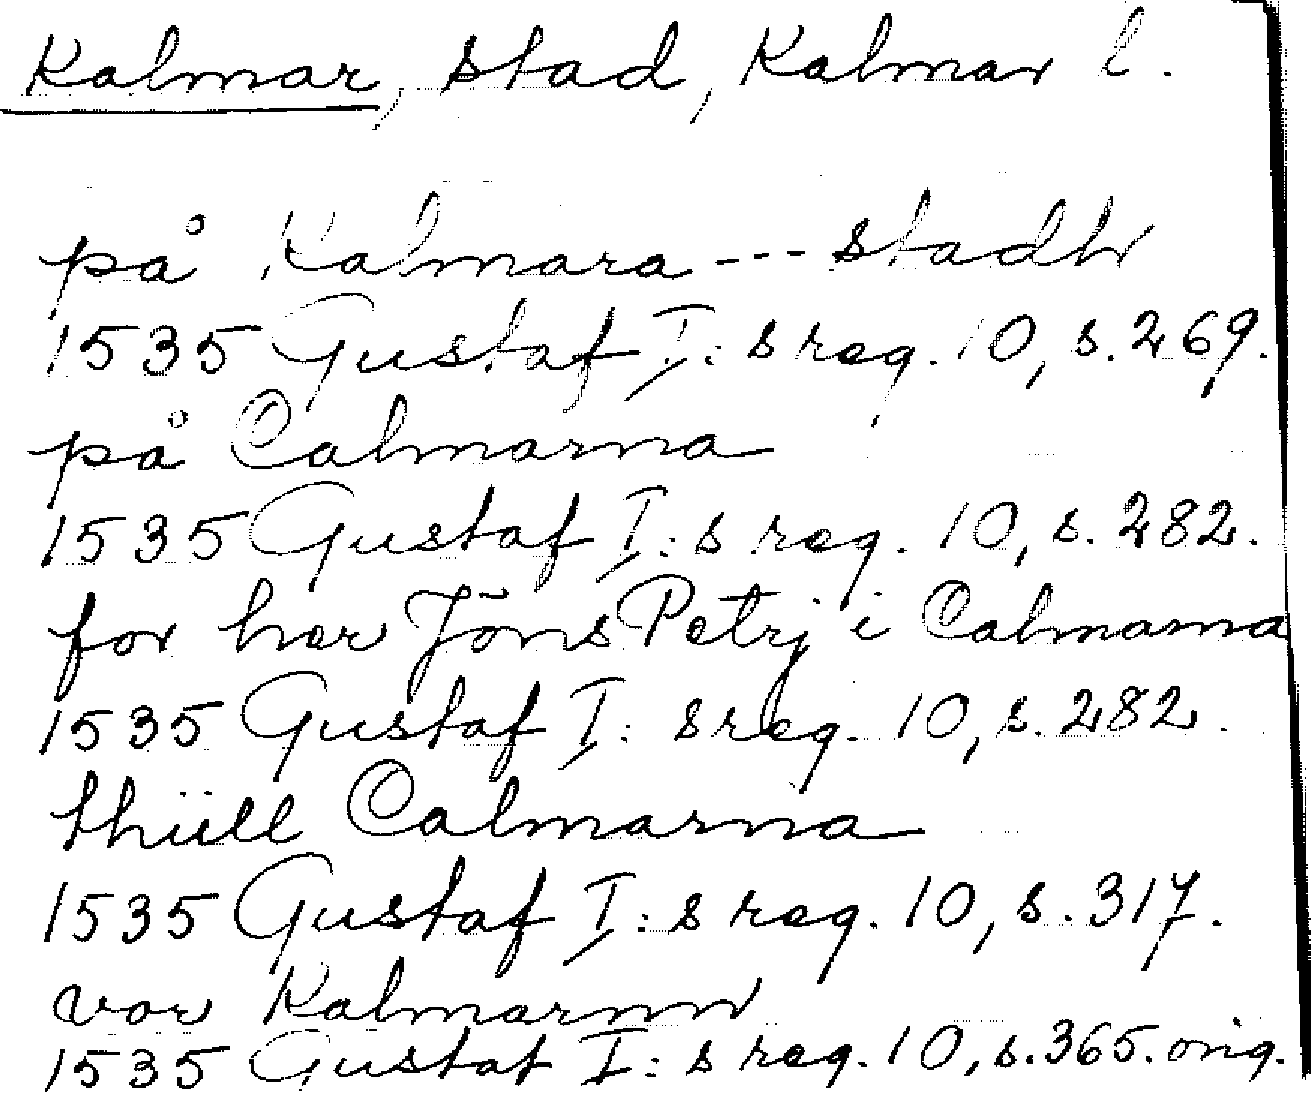 Kalmar, stad, Kalmar l.
på Kalmara --- stadh
1535 Gustaf I: s reg. 10, s. 269.
på Calmarna
1535 Gustaf I: s reg. 10, s. 282.
for her Jöns Petrj i Calmarna
1535 Gustaf I: s reg. 10, s. 282.
thiill Calmarna
1535 Gustaf I: s reg. 10, s. 317.
vor Kalmarnn
1535 Gustaf I: s reg. 10, s. 365. orig.